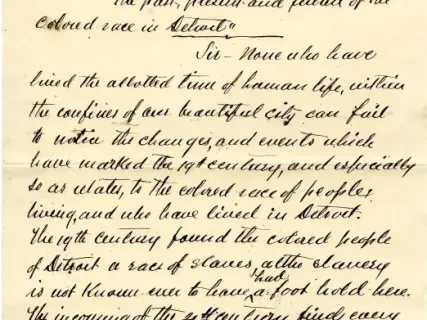 the past, present and future of the
colored race in Detroit"
Sir - None who have
lived the allotted time of human life, within
the confines of our beautiful city can fail
to notice the changes, and events which
have marked the 19th century, and especially
so as relates, to the colored race of peoples
living, and who have lived in Detroit.
The 19th century found the colored people
of Detroit a race of slaves, altho slavery
is not known ever to have had a foot hold here.
The incoming of the 20th century finds every